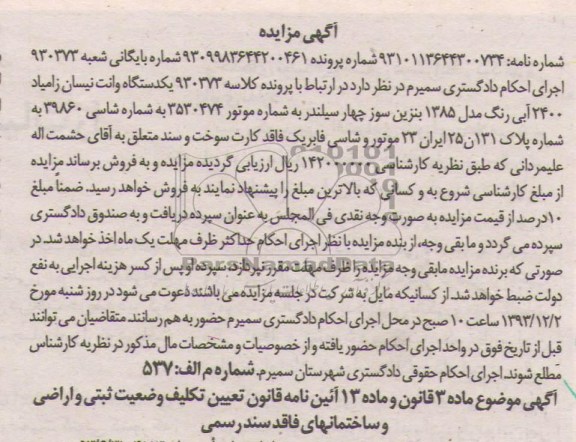 آگهی مزایده
شماره نامه: ۹۳۱۰۱۱۳۶۴۴۳۰۰۷۳۴ شماره پرونده ۹۳۰۹۹۸۳۶۴۴۲۰۰۴۶۱ شماره بایگانی شعبه ۹۳۰۳۷۳
اجرای احکام دادگستری سمیرم در نظر دارد در ارتباط با پرونده کلاسه ۹۳۰۳۷۳ یکدستگاه وانت نیسان زامیاد
۲۴۰۰ آبی رنگ مدل ۱۳۸۵ بنزین سوز چهار سیلندر به شماره موتور ۳۵۳۰۴۷۴ به شماره شاسی ۳۹۸۶۰ به
شماره پلاک ۱۳۱ن۲۵ ایران ۲۳ موتور و شاسی فابریک فاقد کارت سوخت و سند متعلق به آقای حشمت اله
علیمردانی که طبق نظریه کارشناسی ریال ارزیابی گردیده مزایده و به فروش برساند مزایده
از مبلغ کارشناسی شروع به و کسانی که بالاترین مبلغ را پیشنهاد نمایند به فروش خواهد رسید. ضمناً مبلغ
۱۰درصد از قیمت مزایده به صورت وجه نقدی فی المجلس به عنوان سپرده دریافت و به صندوق دادگستری
سپرده می گردد و مابقی وجه، از بنده مزایده با نظر اجرای احکام حداکثر ظرف مهلت یک ماه اخذ خواهد شد. در
صورتی که برنده مزایده مابقی وجه مزایده را ظرف مهلت مقرر نپردازد، سپرده او پس از کسر هزینه اجرایی به نفع
دولت ضبط خواهد شد. از کسانیکه مایل به شرکت در جلسه مزایده می باشند دعوت می شود در روز شنبه مورخ
۱۳۹۳/۱۲/۲ ساعت ۱۰ صبح در محل اجرای احکام دادگستری سمیرم حضور به هم رسانند. متقاضیان می توانند
قبل از تاریخ فوق در واحد اجرای احکام حضور یافته و از خصوصیات و مشخصات مال مذکور در نظریه کارشناس
مطلع شوند. اجرای احکام حقوقی دادگستری شهرستان سمیرم. شماره م الف: ۵۳۷
آگهی موضوع ماده ۳ قانون و ماده ۱۳ آئین نامه قانون تعیین تکلیف وضعیت ثبتی و اراضی
و ساختمانهای فاقد سند رسمی
ParsNamadData